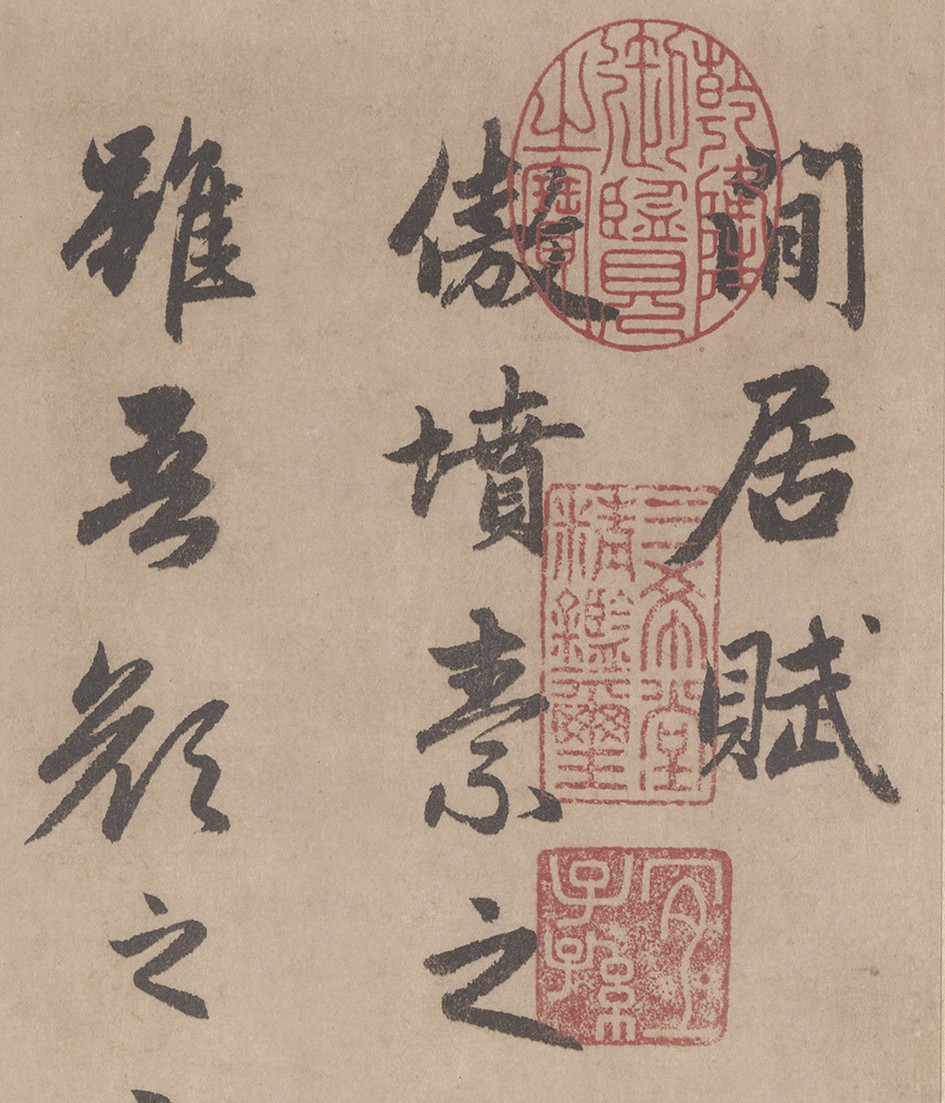 閒居賦
傲墳素之
雖吾顏之
乾隆御覽之寶
三希堂精鑑璽
宜子孫